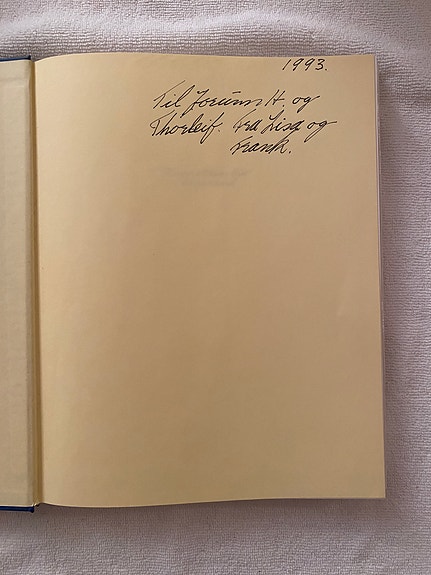 1993.
Til Jorunn H. og
Thorleif. Fra Lisa og
Frank.